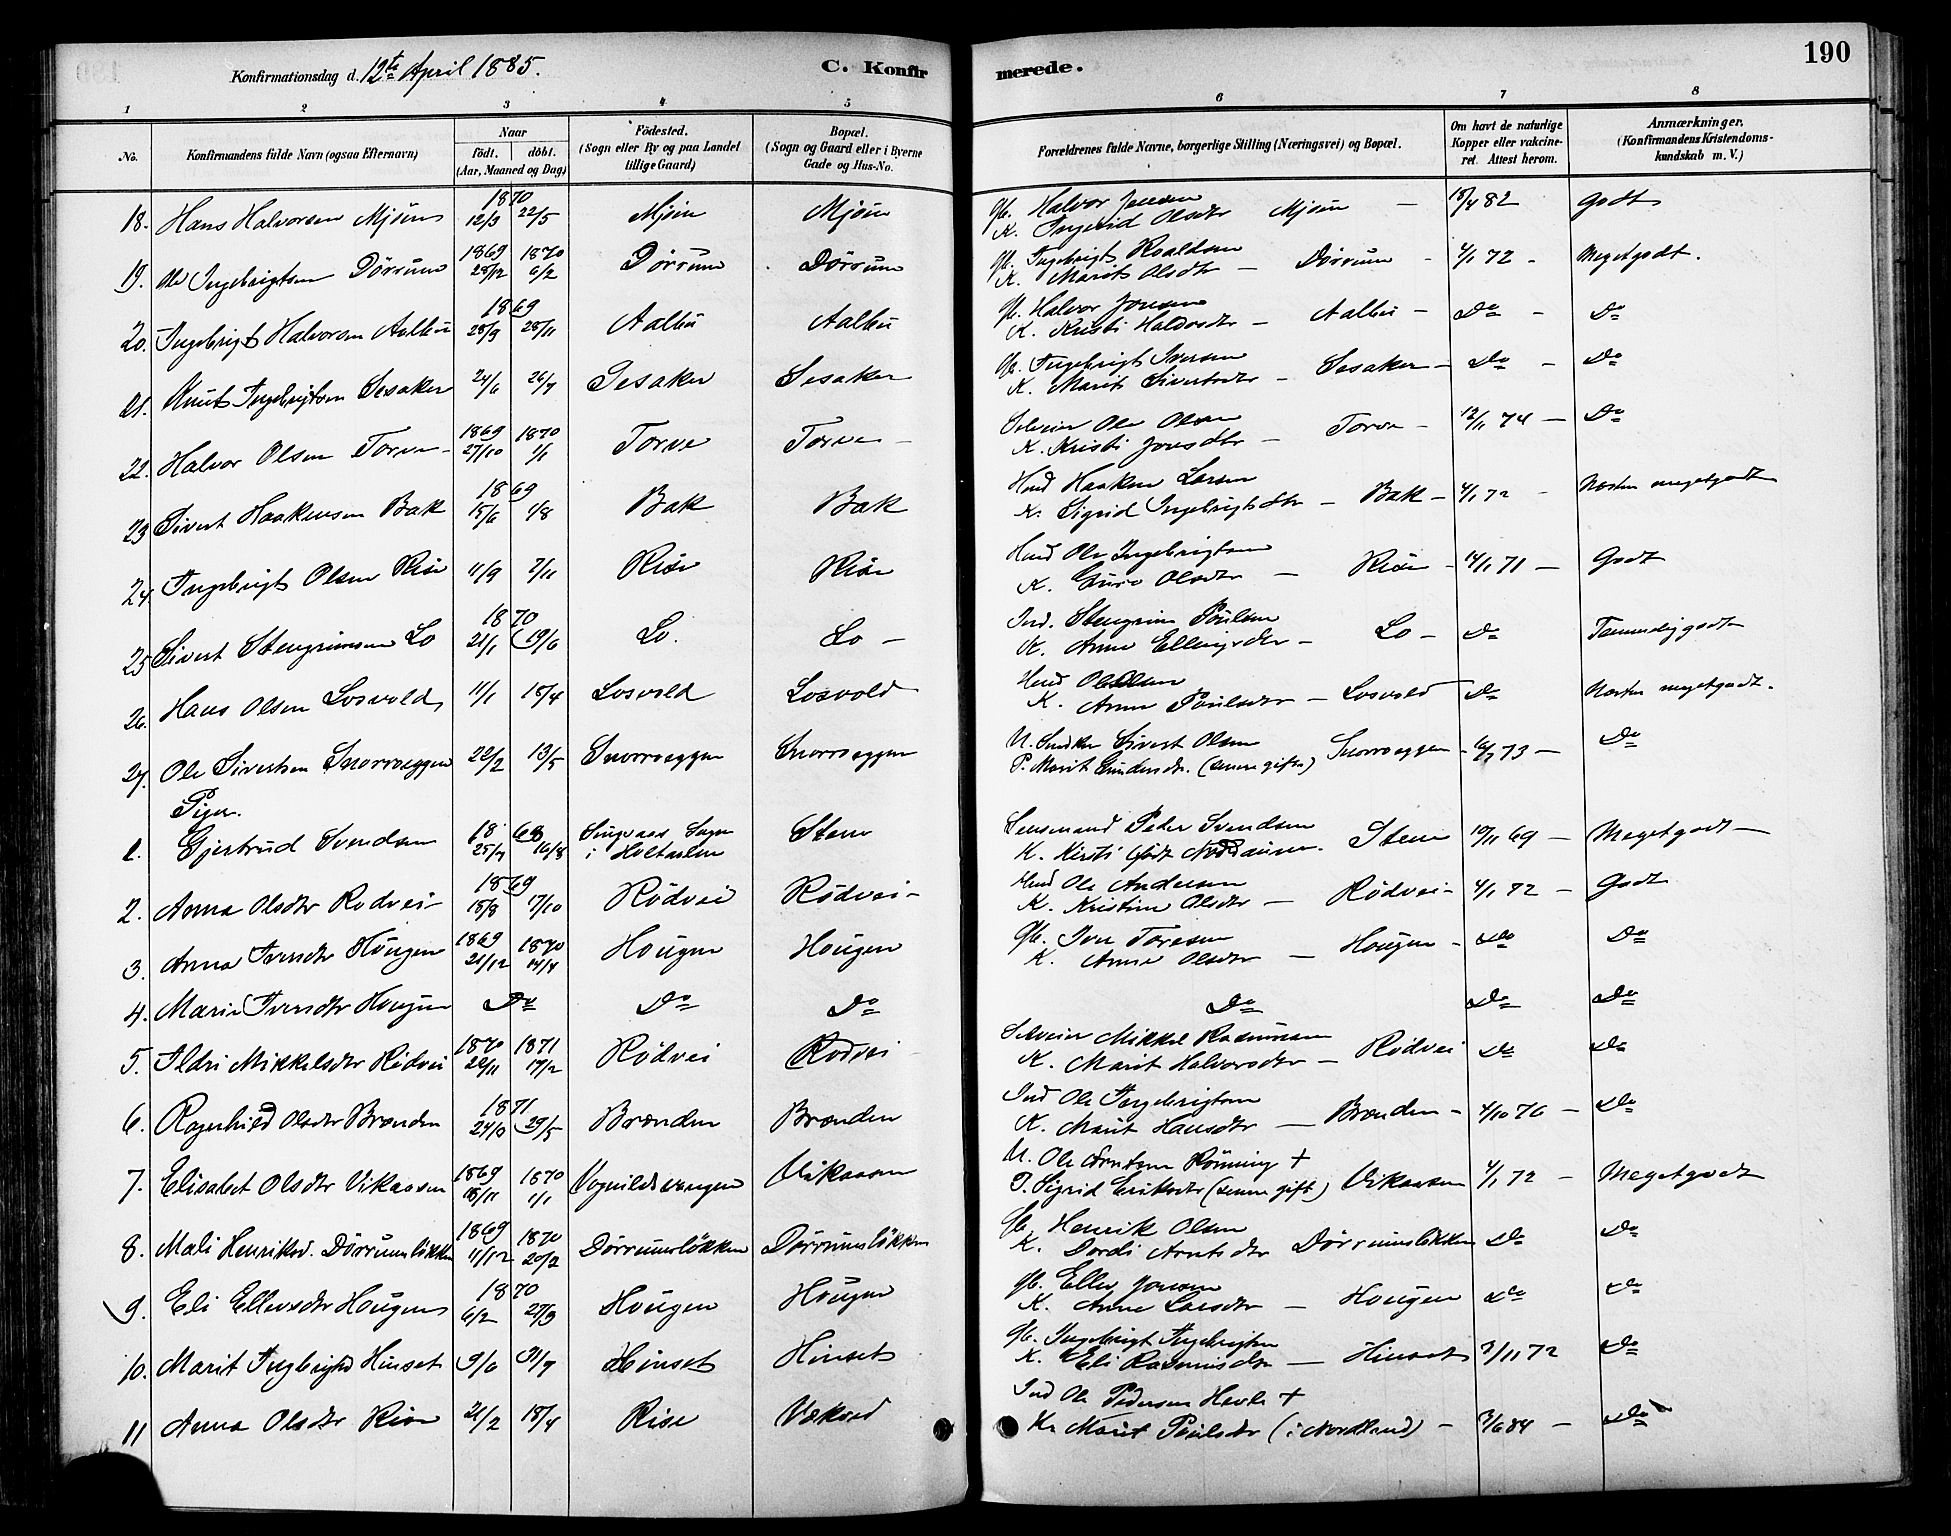 Konfirmationsdag d. 12te April 1885.
C. Konfir
merede.
190
1 2 3 4 5 6 7 8
No.
Konfirmandens fulde Navn (ogsaa Efternavn)
Naar
födt. döbt.
(Aar, Maaned og Dag)
Födested.
(Sogn eller By og paa Landet
tillige Gaard)
Bopæl.
(Sogn og Gaard eller i Byerne
Gade og Hus-No.
Forældrenes fulde Navne, borgerlige Stilling (Næringsvei) og Bopæl.
Om havt de naturlige
Kopper eller vakcine-
ret. Attest herom.
Anmærkninger,
(Konfirmandens Kristendoms-
kundskab m. V.)
18. Hans Halvorsen Mjöen 1870 12/3 22/5 Mjöen Mjöen Gb. Halvor Jensen K. Ingerid Olsdtr Mjöen — 82 Godt
19. Ole Ingebrigtsen Dörrum 1869 28/12 1870 6/2 Dörrum Dörrum Gb. Ingebrigt Roaldsen K. Marit Olsdtr — Dörrum - 4/1 72 - Megetgodt.
20. Ingebrigt Halvorsen Aalbu 1869 28/9 28/11 Aalbu Aalbu Gb. Halvor Jonsen K. Kristi Haldosdtr — Aalbu — Do — Do
21. Knut Ingebrigtsen Sesaker 24/6 26/7 Sesaker Sesaker Gb. Ingebrigt Iversen K. Marit Sivertsdtr — Sesaker — Do — Do
22. Halvor Olsen Torve 1869 27/10 1870 1/1 Torve Torve — Selveier Ole Olsen K. Kristi Jonsdtr — Torve — 12/11 74 — Do
23 Sivert Haakensen Bak 1869 15/6 1/8 Bak Bak Husmd Haaken Larsen K. Sigrid Ingebrigtsdtr — Bak — 4/1 72 — Næsten megetgodt
24. Ingebrigt Olsen Rise 11/9 7/11 Rise Rise Husmd Ole Ingebrigtsen K. Guro Olsdtr — Rise — 14/1 71 — Godt
25 Sivert Stengrimsen Lo 1870 21/1 19/6 Lo. Lo — Ind. Stengrim Poulsen K. Anne Ellingsdtr — Lo — Do Temmelig godt
26. Hans Olsen Losvold 11/1 18/4 Losvold Losvold Husmd Ole Olsen K. Anne Poulsdtr — Losvold Do Næsten megetgodt.
27. Ole Sivertsen Snorroeggen 22/2 13/5 Snorroeggen Snorroeggen U. Snedker Sivert Olsen P. Marit Gundersdtr. (senere gifte) Snorroeggen — 73 — Do
Piger.
1. Gjertrud Svendsen 1868 25/7 16/8 Singsaas Sogn i Holtaalen Steen Lensmand Peder Svendsen K. Kirsti födt — Steen 10/11 69 — Megetgodt —
2. Anna Olsdtr Rödvei 1869 18/8 17/10 Rödvei Rödvei — Husmd Ole Andersen K. Kristine Olsdtr — Rödvei — 4/1 72 — Godt
3. Anna Iversdtr Hougen 1869 21/12 1870 14/4 Hougen Hougen Gb. Iver Toresen K. Anne Olsdtr — Hougen — Do Do
4. Marie Iversdtr Hougen Do Do Do Do Do Do
5. Ildri Mikkelsdtr Rödvei 1870 20/11 1871 17/2 Rödvei Rödvei Selveier Mikkel Rasmussen K. Marit Halvorsdtr — Rödvei Do Do
6. Ragnhild Olsdtr Brænden 1871 29/5 Brænden Brænden Ind Ole Ingebrigtsen K. Marit Hansdtr — Brænden — 4/10 76 — Do
7. Elisabet Olsdtr Vikaasen 1869 18/11 1870 1/1 Vognildsvangen Vikaasen U. Ole Arntsen Rönning + P. Sigrid Eriksdtr (senere gift) Vikaasen 4/1 72 — Megetgodt
8. Mali Henriksd. Dörrumslökken 1869 11/12 1870 20/2 Dörrumslökken Dörrumslökken Gb. Henrik Olsen K. Dordi Arntsdtr Dörrumslökken Do Do
9. Eli Ellevsdtr Hougen 1870 6/2 27/3 Hougen Hougen Gb. Ellev Jonsen K. Anne Larsdtr — Hougen Do Do
10. Marit Ingebrigtsd Hinset 9/6 31/7 Hinset Hinset Gb. Ingebrigt Ingebrigtsen K. Eli Rasmusdtr — Hinset 3/11 72 Do
11 Anna Olsdtr Rise 21/2 18/4 Rise Vækved Ind Ole Pedersen Hevle + K. Marit Poulsdtr (i Nordland) — 3/6 84 — Do